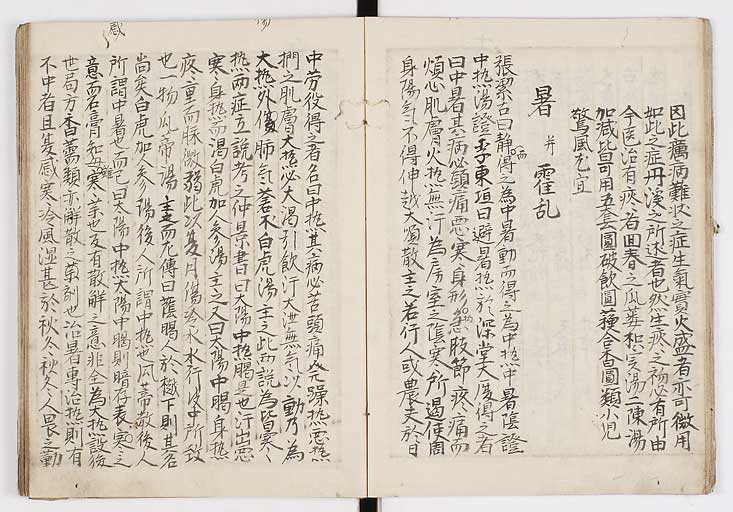 因此癘病難状之症生氣實火盛者亦可微用
如此之症丹溪之所述者也然生痰之初必有所由
今医治有痰者回春之瓜蔞枳実湯二陳湯
加減皆可用五套圓破飲圓蘓合香圓類小児
驚風尤宜
暑 并 霍乱
張潔古曰静而得之為中暑動而得之為中熱中暑陰證
中熱湯證李東垣曰避暑熱於深堂大厦得之者
曰中暑其病必頭痛悪寒身形拘急肢節疼痛而
煩心肌膚火熱無汗為房室之陰寒所遏使周
身陽気不得伸越大順散主之若行人或農夫於日
中労役得之者名曰中熱其病必苦頭痛発躁熱悪熱
捫之肌膚大熱必大渇引飲汗大泄無気以動乃為
大熱外傷肺気蒼朮白虎湯主之此両説為皆寒
熱両症立説考之仲景書曰太陽中熱暍是也汗出悪
寒身熱而渇白虎加人参湯主之又曰太陽中暍身熱
疼重而脉微弱此以夏月傷冷水水行皮中所致
也一物瓜蒂湯主之而左傳曰蔭暍人於樾下則其名
尚矣白虎加人参湯後人所謂中熱也瓜蒂散後人
所謂中暑也而已曰太陽中熱太陽中暍則暗存表寒之
意而石膏知母雖寒薬也又有散解之意非全為大熱設後
世局方香薷類亦解散之薬剤也治暑専治熱則有
不中者且夏感寒冷風湿甚於秋冬秋冬人畏之勤